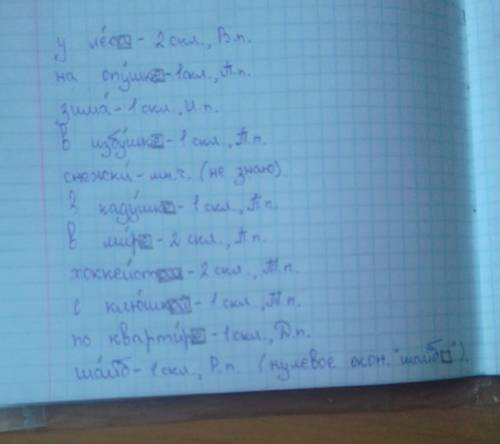 у ле́са - 2 скл., В.п.
на опу́шке - 1 скл., П.п.
зима́ - 1 скл., И.п.
в избу́шке - 1 скл., П.п.
снежки́ - мн.ч. (не знаю).
В каду́шке - 1 скл., П.п.
в ми́ре - 2 скл., П.п.
хоккеи́стом - 2 скл., Т.п.
с клю́шкой - 1 скл., Т.п.
по кварти́ре - 1 скл., Д.п.
ша́йб - 1 скл., Р.п. (нулевое окон. "шайб").